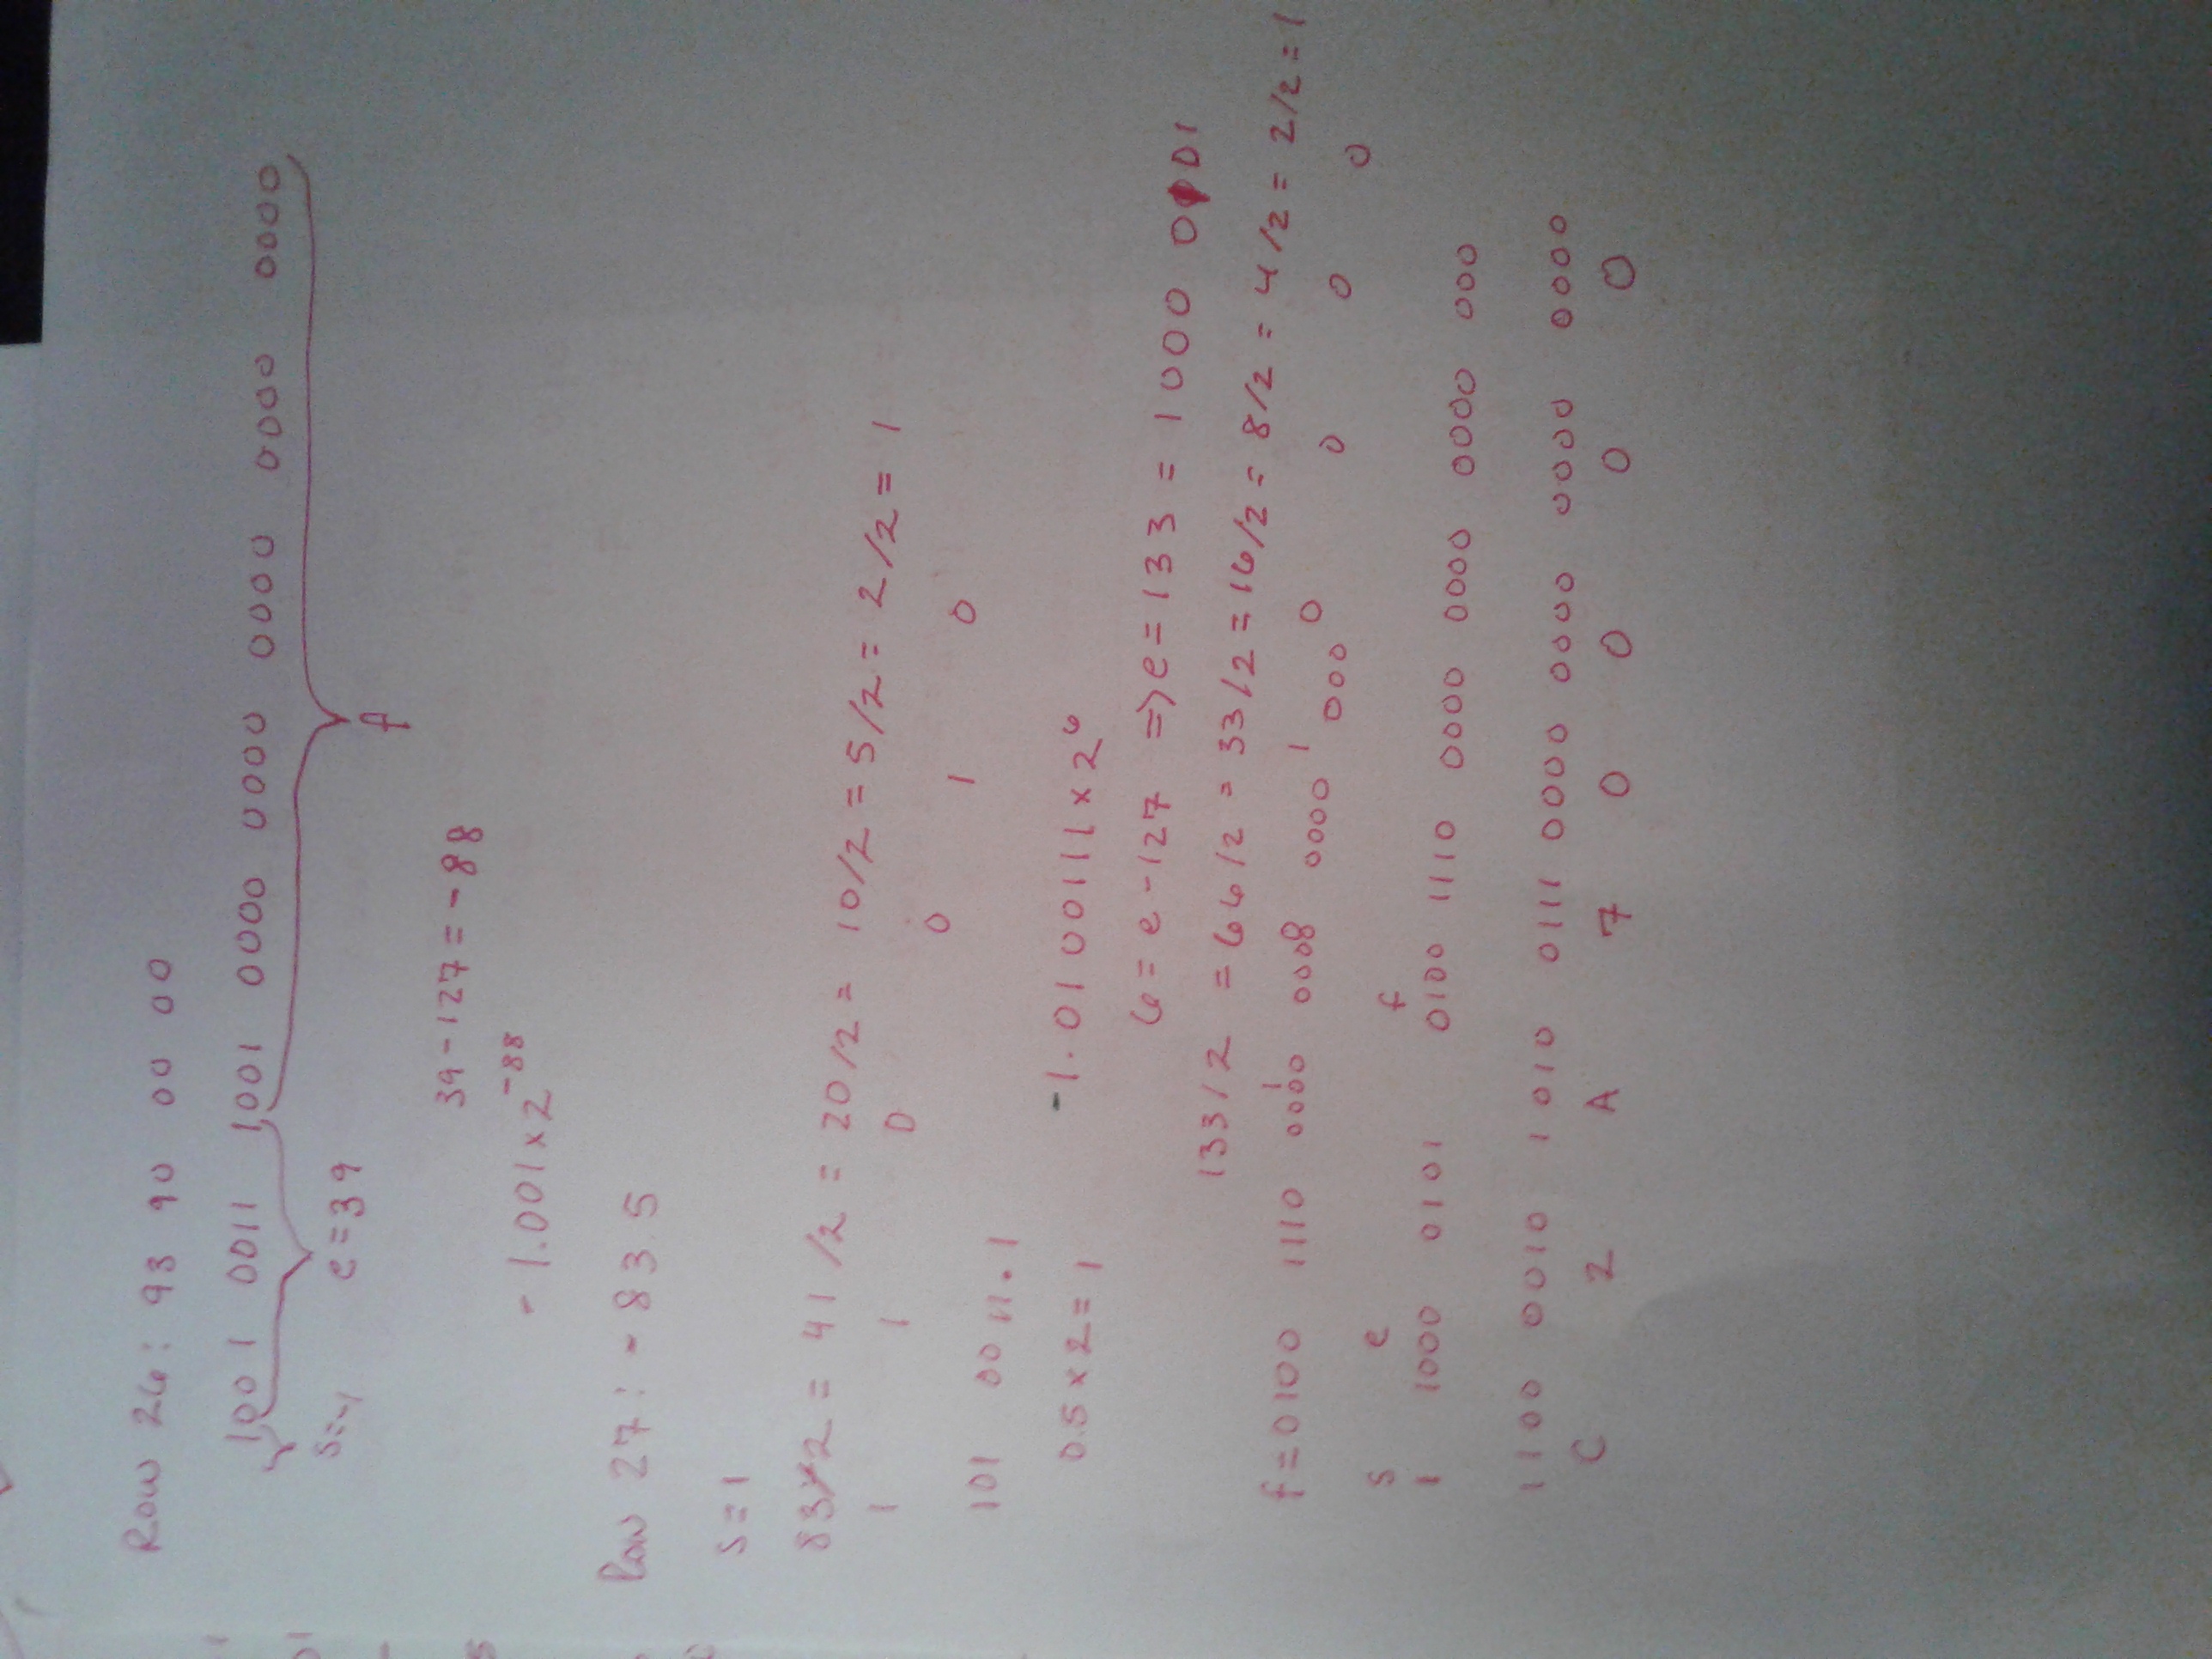 Row 26: 93 90 00 00
1001 0011 1001 0000 0000 0000 0000 0000
s=-1 e=39 f
39-127=-88
-1.001x2^-88
Row 27: -83.5
s=1
83/2 = 41/2 = 20/2 = 10/2 = 5/2 = 2/2 = 1
1 1 0 0 1 0
101 0011.1
0.5x2=1
-1.0100111x2^6
6=e-127 =>e=133=1000 0101
133/2 = 66/2 = 33/2 = 16/2 = 8/2 = 4/2 = 2/2 = 1
1 0 1 0 0 0 0
f=0100 1110 0000 0000 0000 000
s e f
1 1000 0101 0100 1110 0000 0000 0000 000
1100 0010 1010 0111 0000 0000 0000 0000
C 2 A 7 0 0 0 0